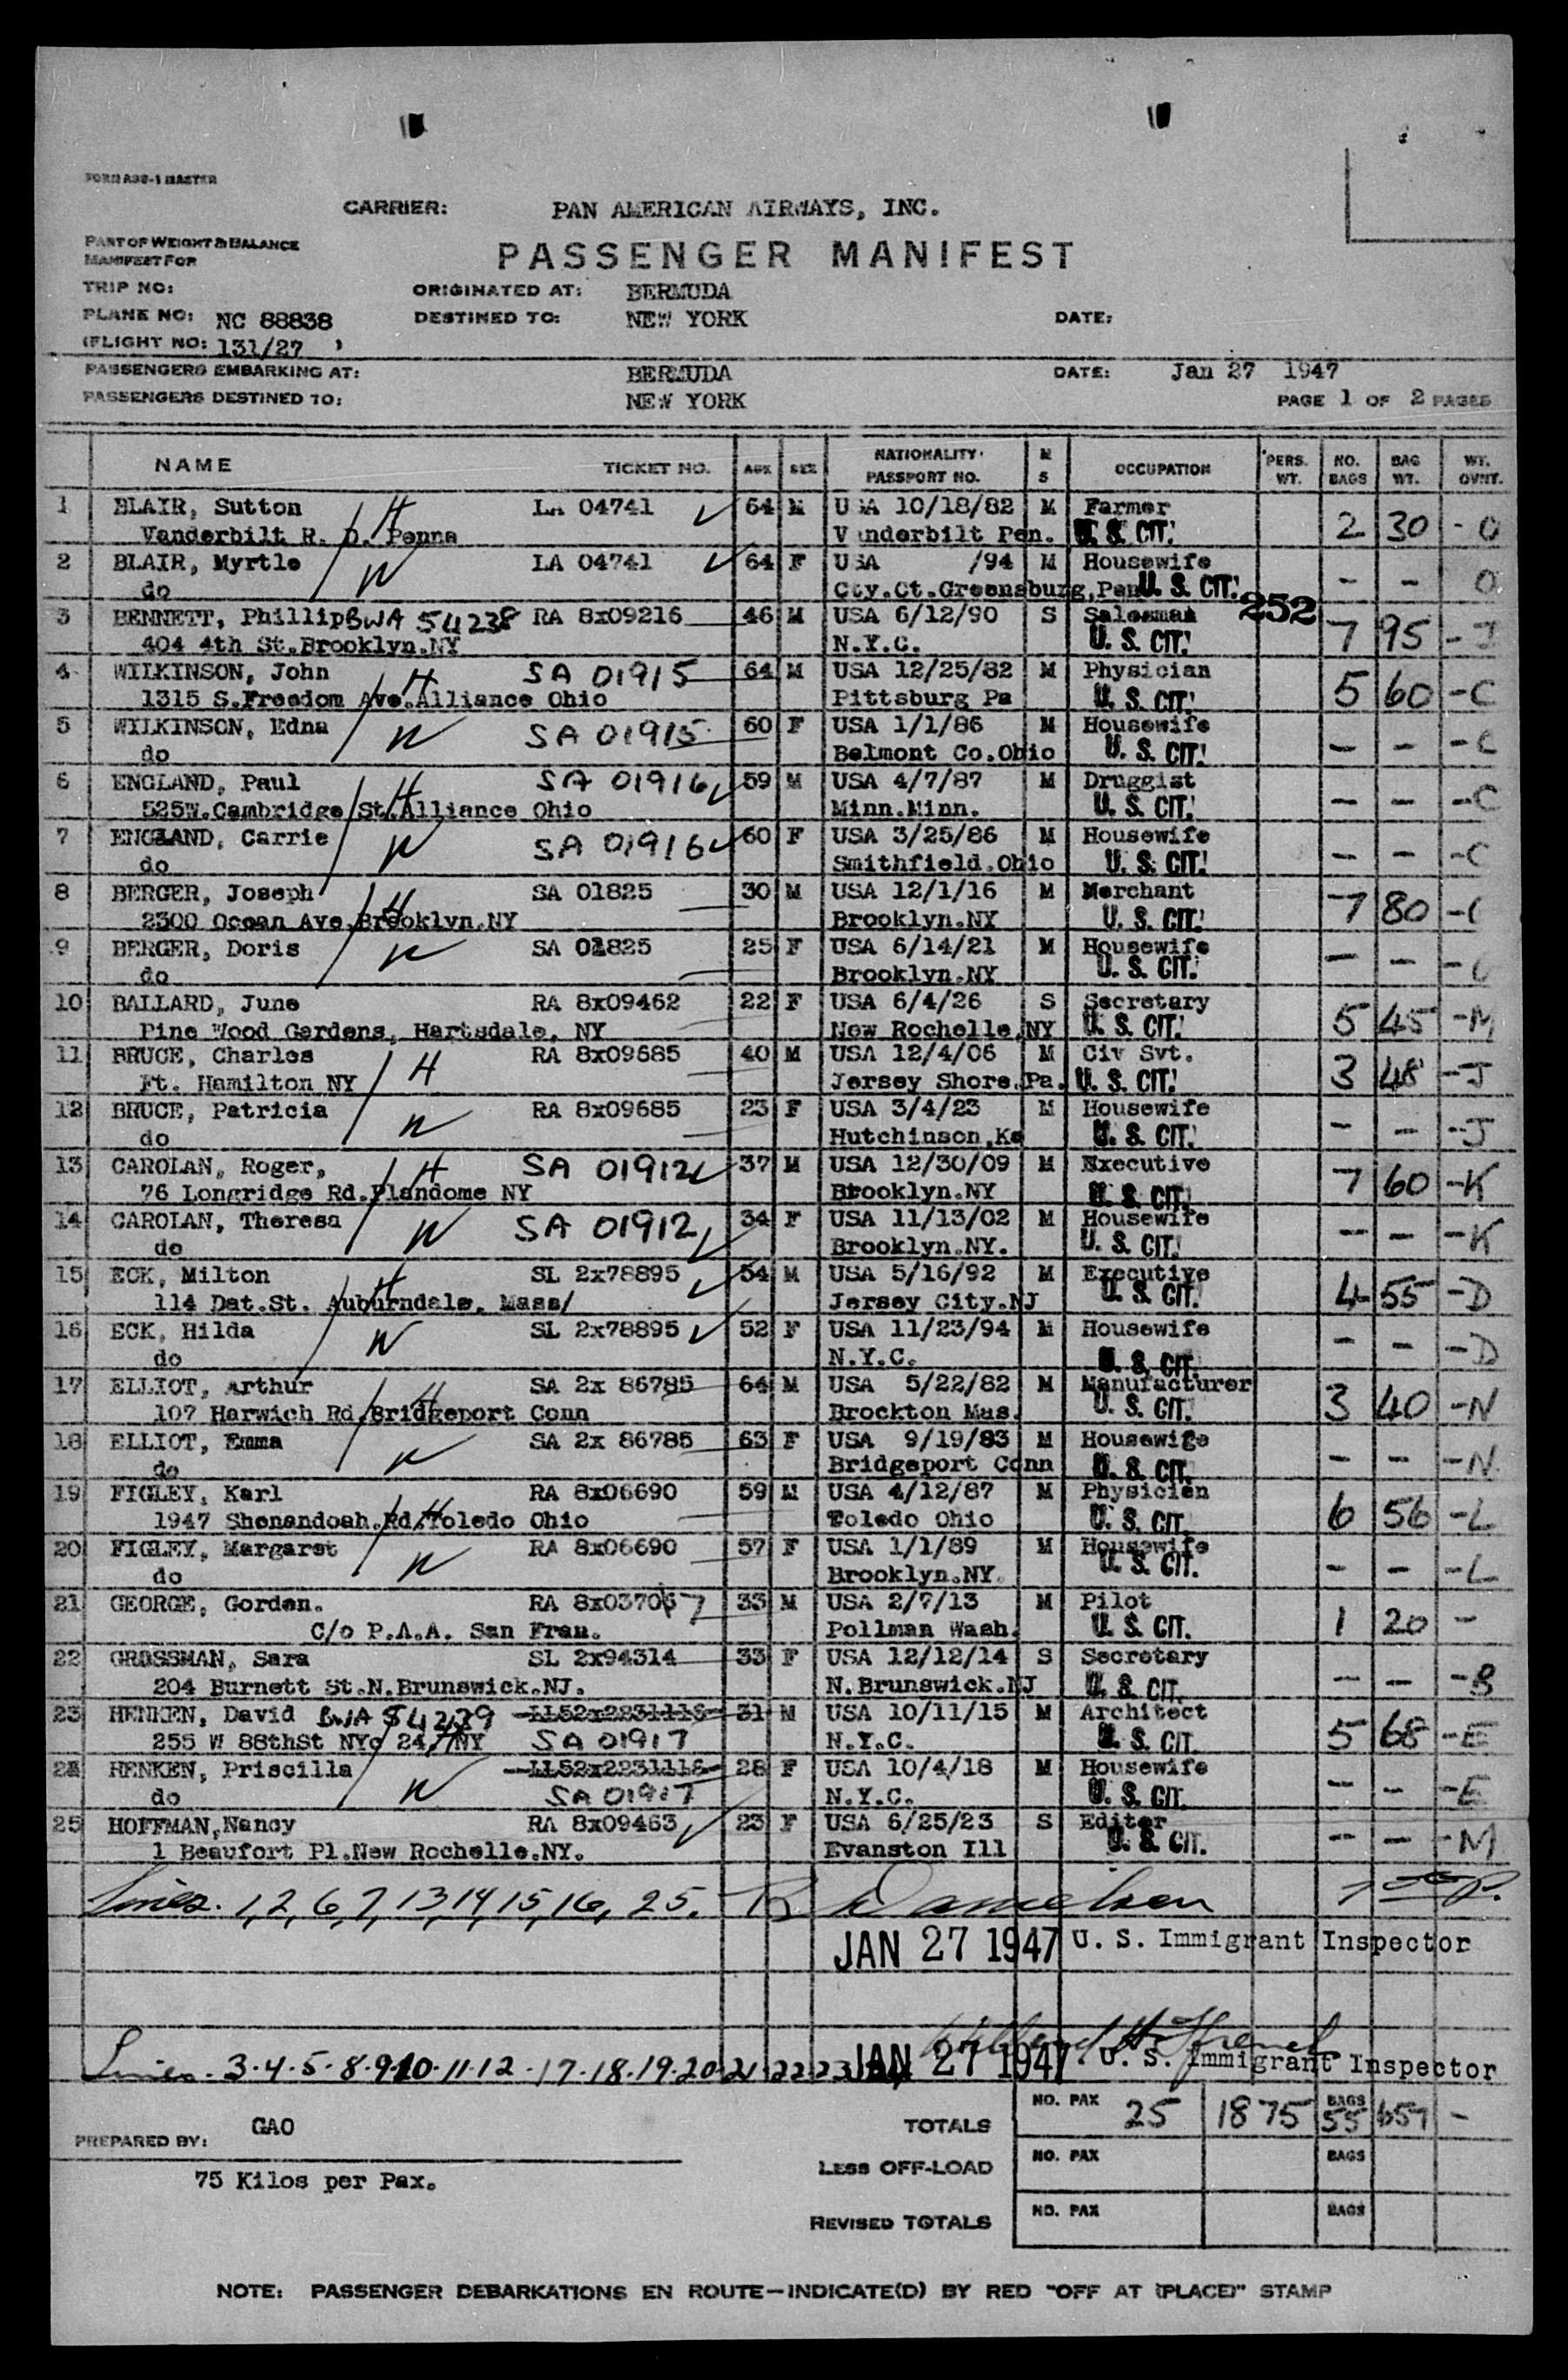 FORM ABS-1 MASTER
CARRIER: PAN AMERICAN AIRWAYS, INC.
PART OF WEIGHT & BALANCE
MANIFEST FOR
PASSENGER MANIFEST
TRIP NO: ORIGINATED AT: BERMUDA
PLANE NO: NC 88838 DESTINED TO: NEW YORK DATE:
(FLIGHT NO: 131/27 )
PASSENGERS EMBARKING AT: BERMUDA DATE: Jan 27 1947
PASSENGERS DESTINED TO: NEW YORK PAGE 1 OF 2 PAGES
NAME TICKET NO. AGE SEX NATIONALITY PASSPORT NO. M S OCCUPATION PERS. WT. NO. BAGS BAG WT. WT. OVNT.
1 BLAIR, Sutton H LA 04741 64 M USA 10/18/82 M Farmer
Vanderbilt R. D. Penna Vanderbilt Pen. U. S. CIT. 2 30 - O
2 BLAIR, Myrtle W LA 04741 64 F USA /94 M Housewife
do Cty.Ct.Greensburg,Pen U. S. CIT. - - O
3 BENNETT, Phillip BWA 54238 RA 8x09216 46 M USA 6/12/90 S Salesman 252
404 4th St.Brooklyn.NY N.Y.C. U. S. CIT. 7 95 - J
4 WILKINSON, John H SA 01915 64 M USA 12/25/82 M Physician
1315 S.Freedom Ave.Alliance Ohio Pittsburg Pa U. S. CIT. 5 60 - C
5 WILKINSON, Edna W SA 01915 60 F USA 1/1/86 M Housewife
do Belmont Co.Ohio U. S. CIT. - - - C
6 ENGLAND, Paul H SA 01916 59 M USA 4/7/87 M Druggist
525W.Cambridge St.Alliance Ohio Minn.Minn. U. S. CIT. - - - C
7 ENGLAND, Carrie W SA 01916 60 F USA 3/25/86 M Housewife
do Smithfield.Ohio U. S. CIT. - - - C
8 BERGER, Joseph H SA 01825 30 M USA 12/1/16 M Merchant
2300 Ocean Ave.Brooklyn.NY Brooklyn.NY U. S. CIT. 7 80 - C
9 BERGER, Doris W SA 01825 25 F USA 6/14/21 M Housewife
do Brooklyn.NY U. S. CIT. - - - C
10 BALLARD, June RA 8x09462 22 F USA 6/4/26 S Secretary
Pine Wood Gardens, Hartsdale, NY New Rochelle,NY U. S. CIT. 5 45 - M
11 BRUCE, Charles H RA 8x09685 40 M USA 12/4/06 M Civ Svt.
Ft. Hamilton NY Jersey Shore.Pa. U. S. CIT. 3 48 - J
12 BRUCE, Patricia W RA 8x09685 23 F USA 3/4/23 M Housewife
do Hutchinson,Ks U. S. CIT. - - - J
13 CAROLAN, Roger, H SA 01912 37 M USA 12/30/09 M Executive
76 Longridge Rd.Plandome NY Brooklyn.NY U. S. CIT. 7 60 - K
14 CAROLAN, Theresa W SA 01912 34 F USA 11/13/02 M Housewife
do Brooklyn.NY. U. S. CIT. - - - K
15 ECK, Milton H SL 2x78895 54 M USA 5/16/92 M Executive
114 Dat.St. Auburndale, Mass/ Jersey City.NJ U. S. CIT. 4 55 - D
16 ECK, Hilda W SL 2x78895 52 F USA 11/23/94 M Housewife
do N.Y.C. U. S. CIT. - - - D
17 ELLIOT, Arthur H SA 2x 86785 64 M USA 5/22/82 M Manufacturer
107 Harwich Rd.Bridgeport Conn Brockton Mas. U. S. CIT. 3 40 - N
18 ELLIOT, Emma W SA 2x 86785 63 F USA 9/19/83 M Housewife
do Bridgeport Conn U. S. CIT. - - - N
19 FIGLEY, Karl H RA 8x06690 59 M USA 4/12/87 M Physician
1947 Shenandoah.Rd.Toledo Ohio Toledo Ohio U. S. CIT. 6 56 - L
20 FIGLEY, Margaret W RA 8x06690 57 F USA 1/1/89 M Housewife
do Brooklyn.NY. U. S. CIT. - - - L
21 GEORGE, Gordon. RA 8x03706 7 33 M USA 2/7/13 M Pilot
C/o P.A.A. San Fran. Pollman Wash. U. S. CIT. 1 20 -
22 GROSSMAN, Sara SL 2x94314 33 F USA 12/12/14 S Secretary
204 Burnett St.N.Brunswick.NJ. N.Brunswick.NJ U. S. CIT. - - - B
23 HENKEN, David BWA 54239 LL52x2231118 31 M USA 10/11/15 M Architect
255 W 88thSt NYc 24, NY H SA 01917 N.Y.C. U. S. CIT. 5 68 - E
24 HENKEN, Priscilla W LL52x2231118 28 F USA 10/4/18 M Housewife
do SA 01917 N.Y.C. U. S. CIT. - - - E
25 HOFFMAN,Nancy RA 8x09463 23 F USA 6/25/23 S Editor
1 Beaufort Pl.New Rochelle.NY. Evanston Ill U. S. CIT. - - - M
Lines. 1,2,6,7,13,14,15,16, 25. R Danielsen
JAN 27 1947 U. S. Immigrant Inspector
Lines. 3.4.5.8.9.10.11.12.17.18.19.20.21.22.23. JAN 27 1947 U. S. Immigrant Inspector
TOTALS NO. PAX 25 1875 BAGS 55 657 -
PREPARED BY: GAO
LESS OFF-LOAD NO. PAX BAGS
75 Kilos per Pax.
REVISED TOTALS NO. PAX BAGS
NOTE: PASSENGER DEBARKATIONS EN ROUTE—INDICATE(D) BY RED "OFF AT (PLACE)" STAMP